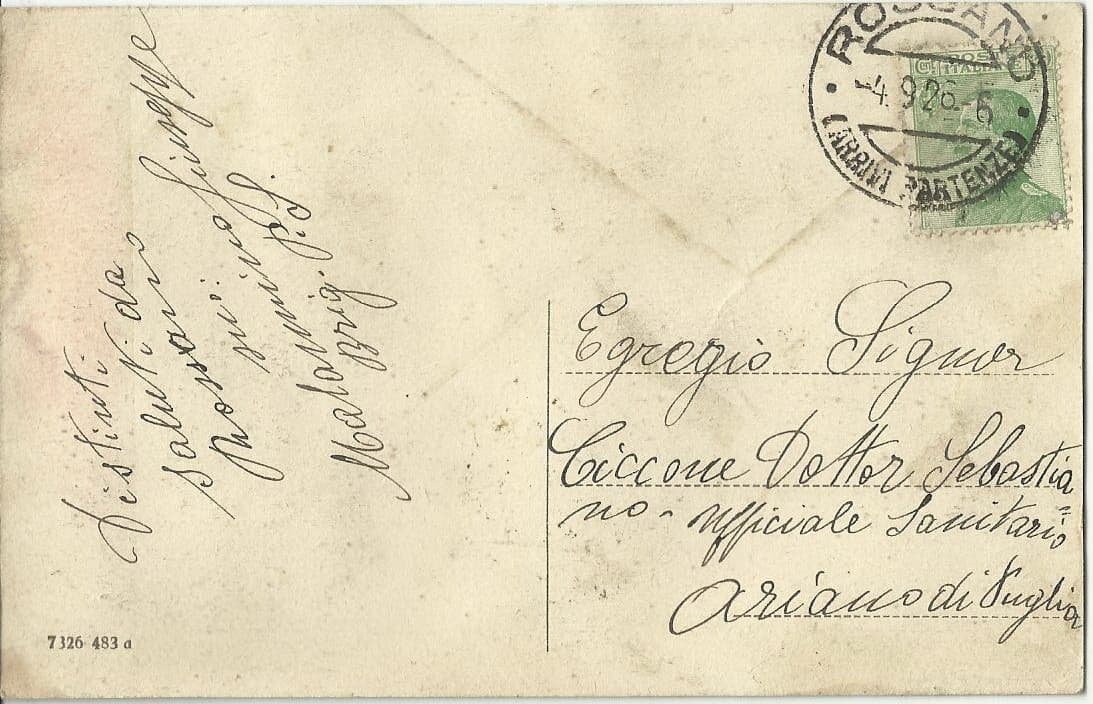 Distinti
saluti da
salvano Giuseppe
Rossano
Malo Brig. P.S.
ROSSANO
-4.9.26-6
(ARRIVI PARTENZE)
POSTE
ITALIA
Egregio Signor
Ciccone Dottor Sebastia=
no - Ufficiale Sanitario
Ariano di Puglia
7326 483 a